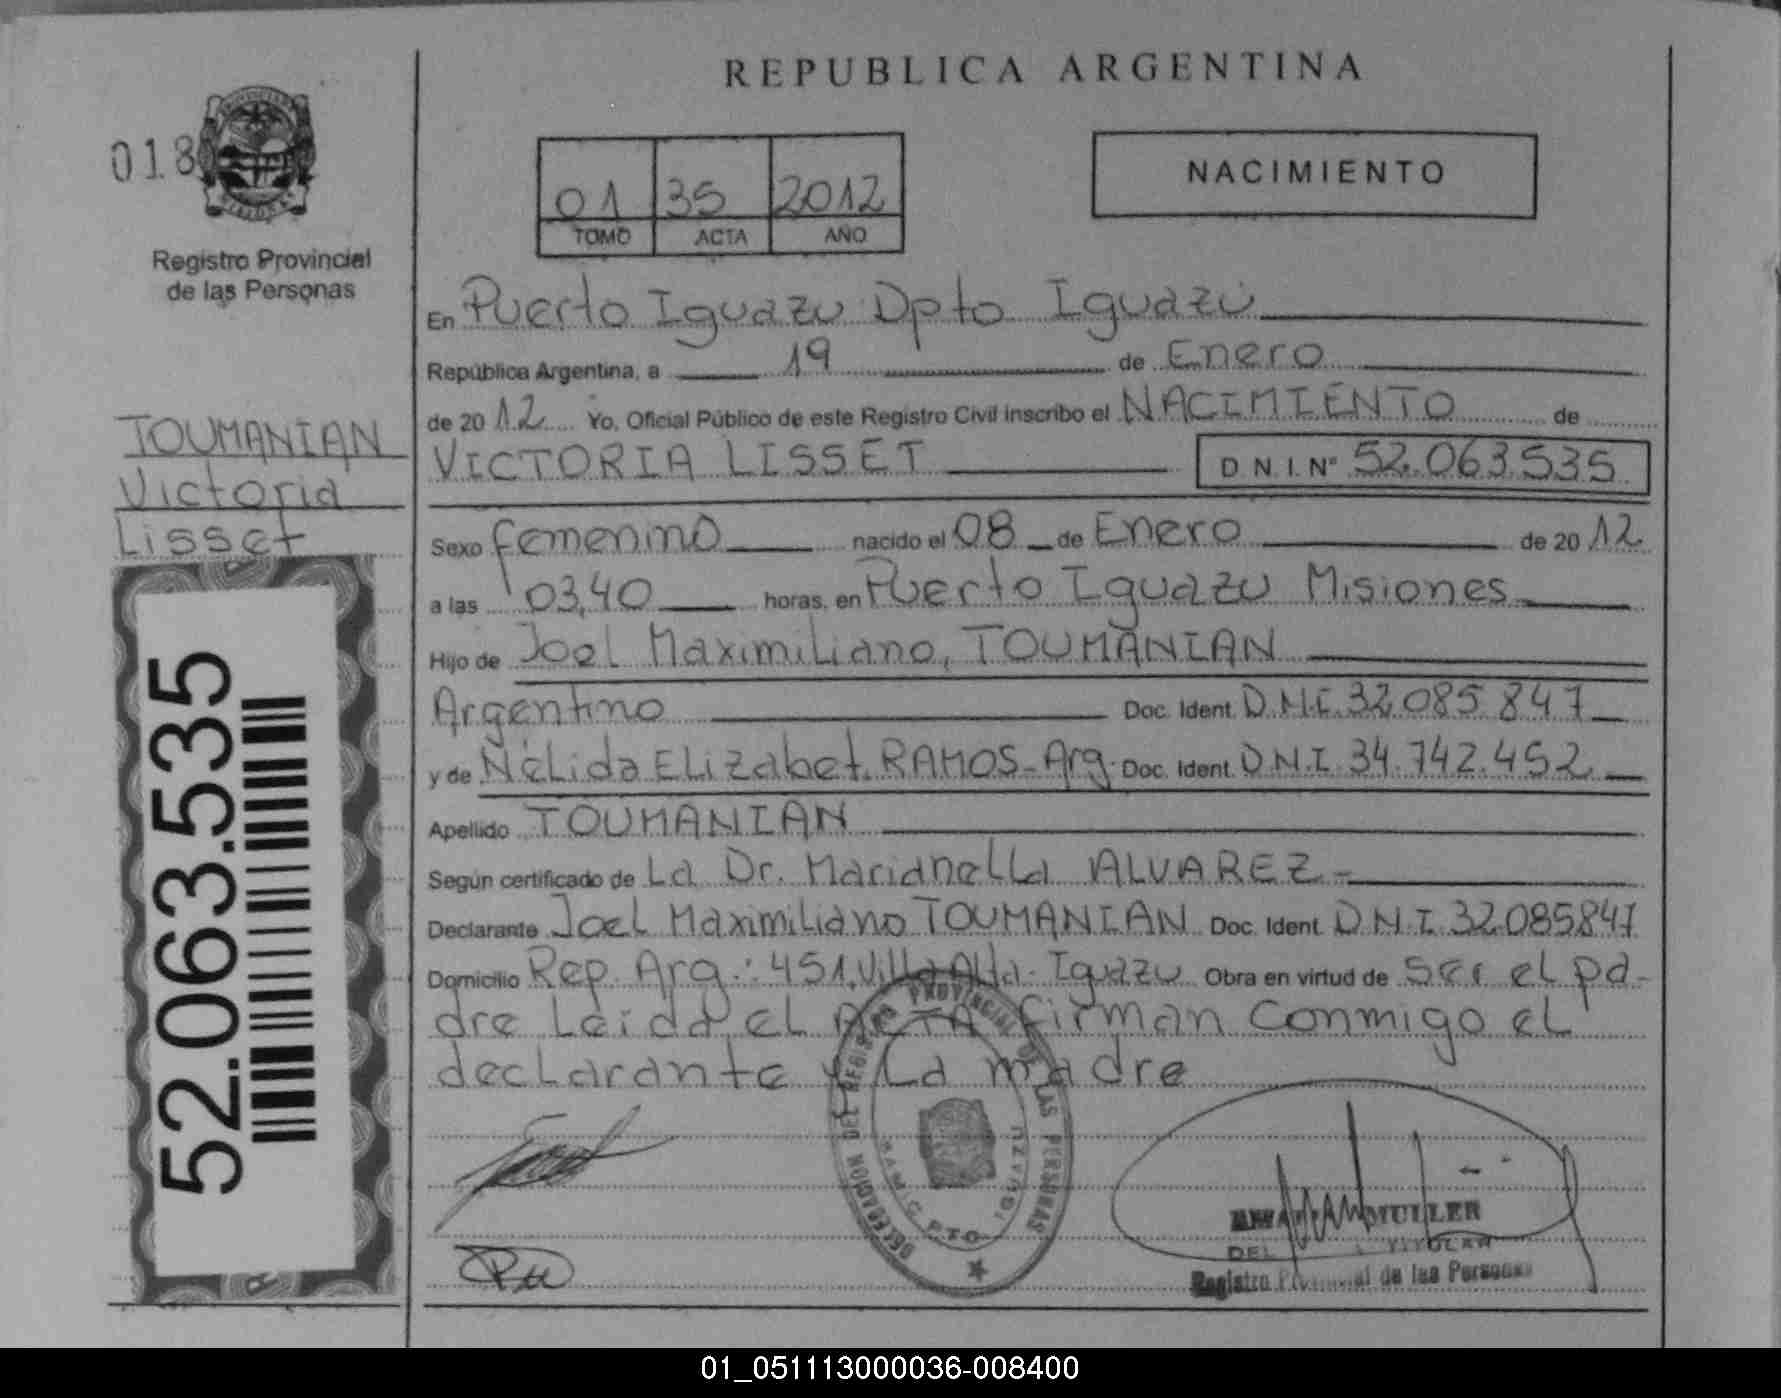 REPUBLICA ARGENTINA
018
Registro Provincial
de las Personas
01 35 2012
TOMO ACTA AÑO
NACIMIENTO
En Puerto Iguazu Dpto Iguazú
República Argentina, a 19 de Enero
de 2012 Yo, Oficial Público de este Registro Civil inscribo el NACIMIENTO de
VICTORIA LISSET D.N.I. N° 52.063.535
TOUMANIAN
Victoria
Lisset
Sexo femenino nacido el 08 de Enero de 2012
a las 03,40 horas, en Puerto Iguazu Misiones
Hijo de Joel Maximiliano, TOUMANIAN
Argentino Doc. Ident. D.N.I. 32.085.847
y de Nélida Elizabet. RAMOS- Arg. Doc. Ident. D.N.I. 34.742.452
Apellido TOUMANIAN
Según certificado de La Dr. Marianella ALVAREZ-
Declarante Joel Maximiliano TOUMANIAN Doc. Ident. D.N.I. 32.085847
Domicilio Rep. Arg.: 451, Villa Alta- Iguazu Obra en virtud de ser el pa-
dre Leida el ACTA firman conmigo el
declarante y La madre
52.063.535
DELEGACION DEL REGISTRO PROVINCIAL DE LAS PERSONAS
PTO. IGUAZU
MULLER
DEL TITULAR
Registro Provincial de las Personas
01_051113000036-008400